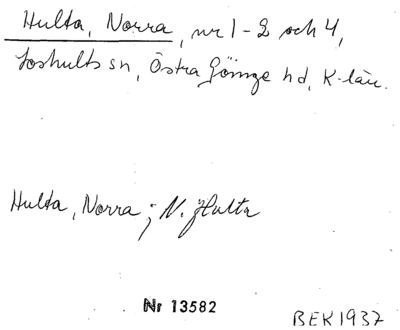 Hulta, Norra, nr 1-2 och 4,
Loshults sn, Östra Göinge hd, K-län.
Hulta, Norra ; N. Hulta
Nr 13582
BEK 1937